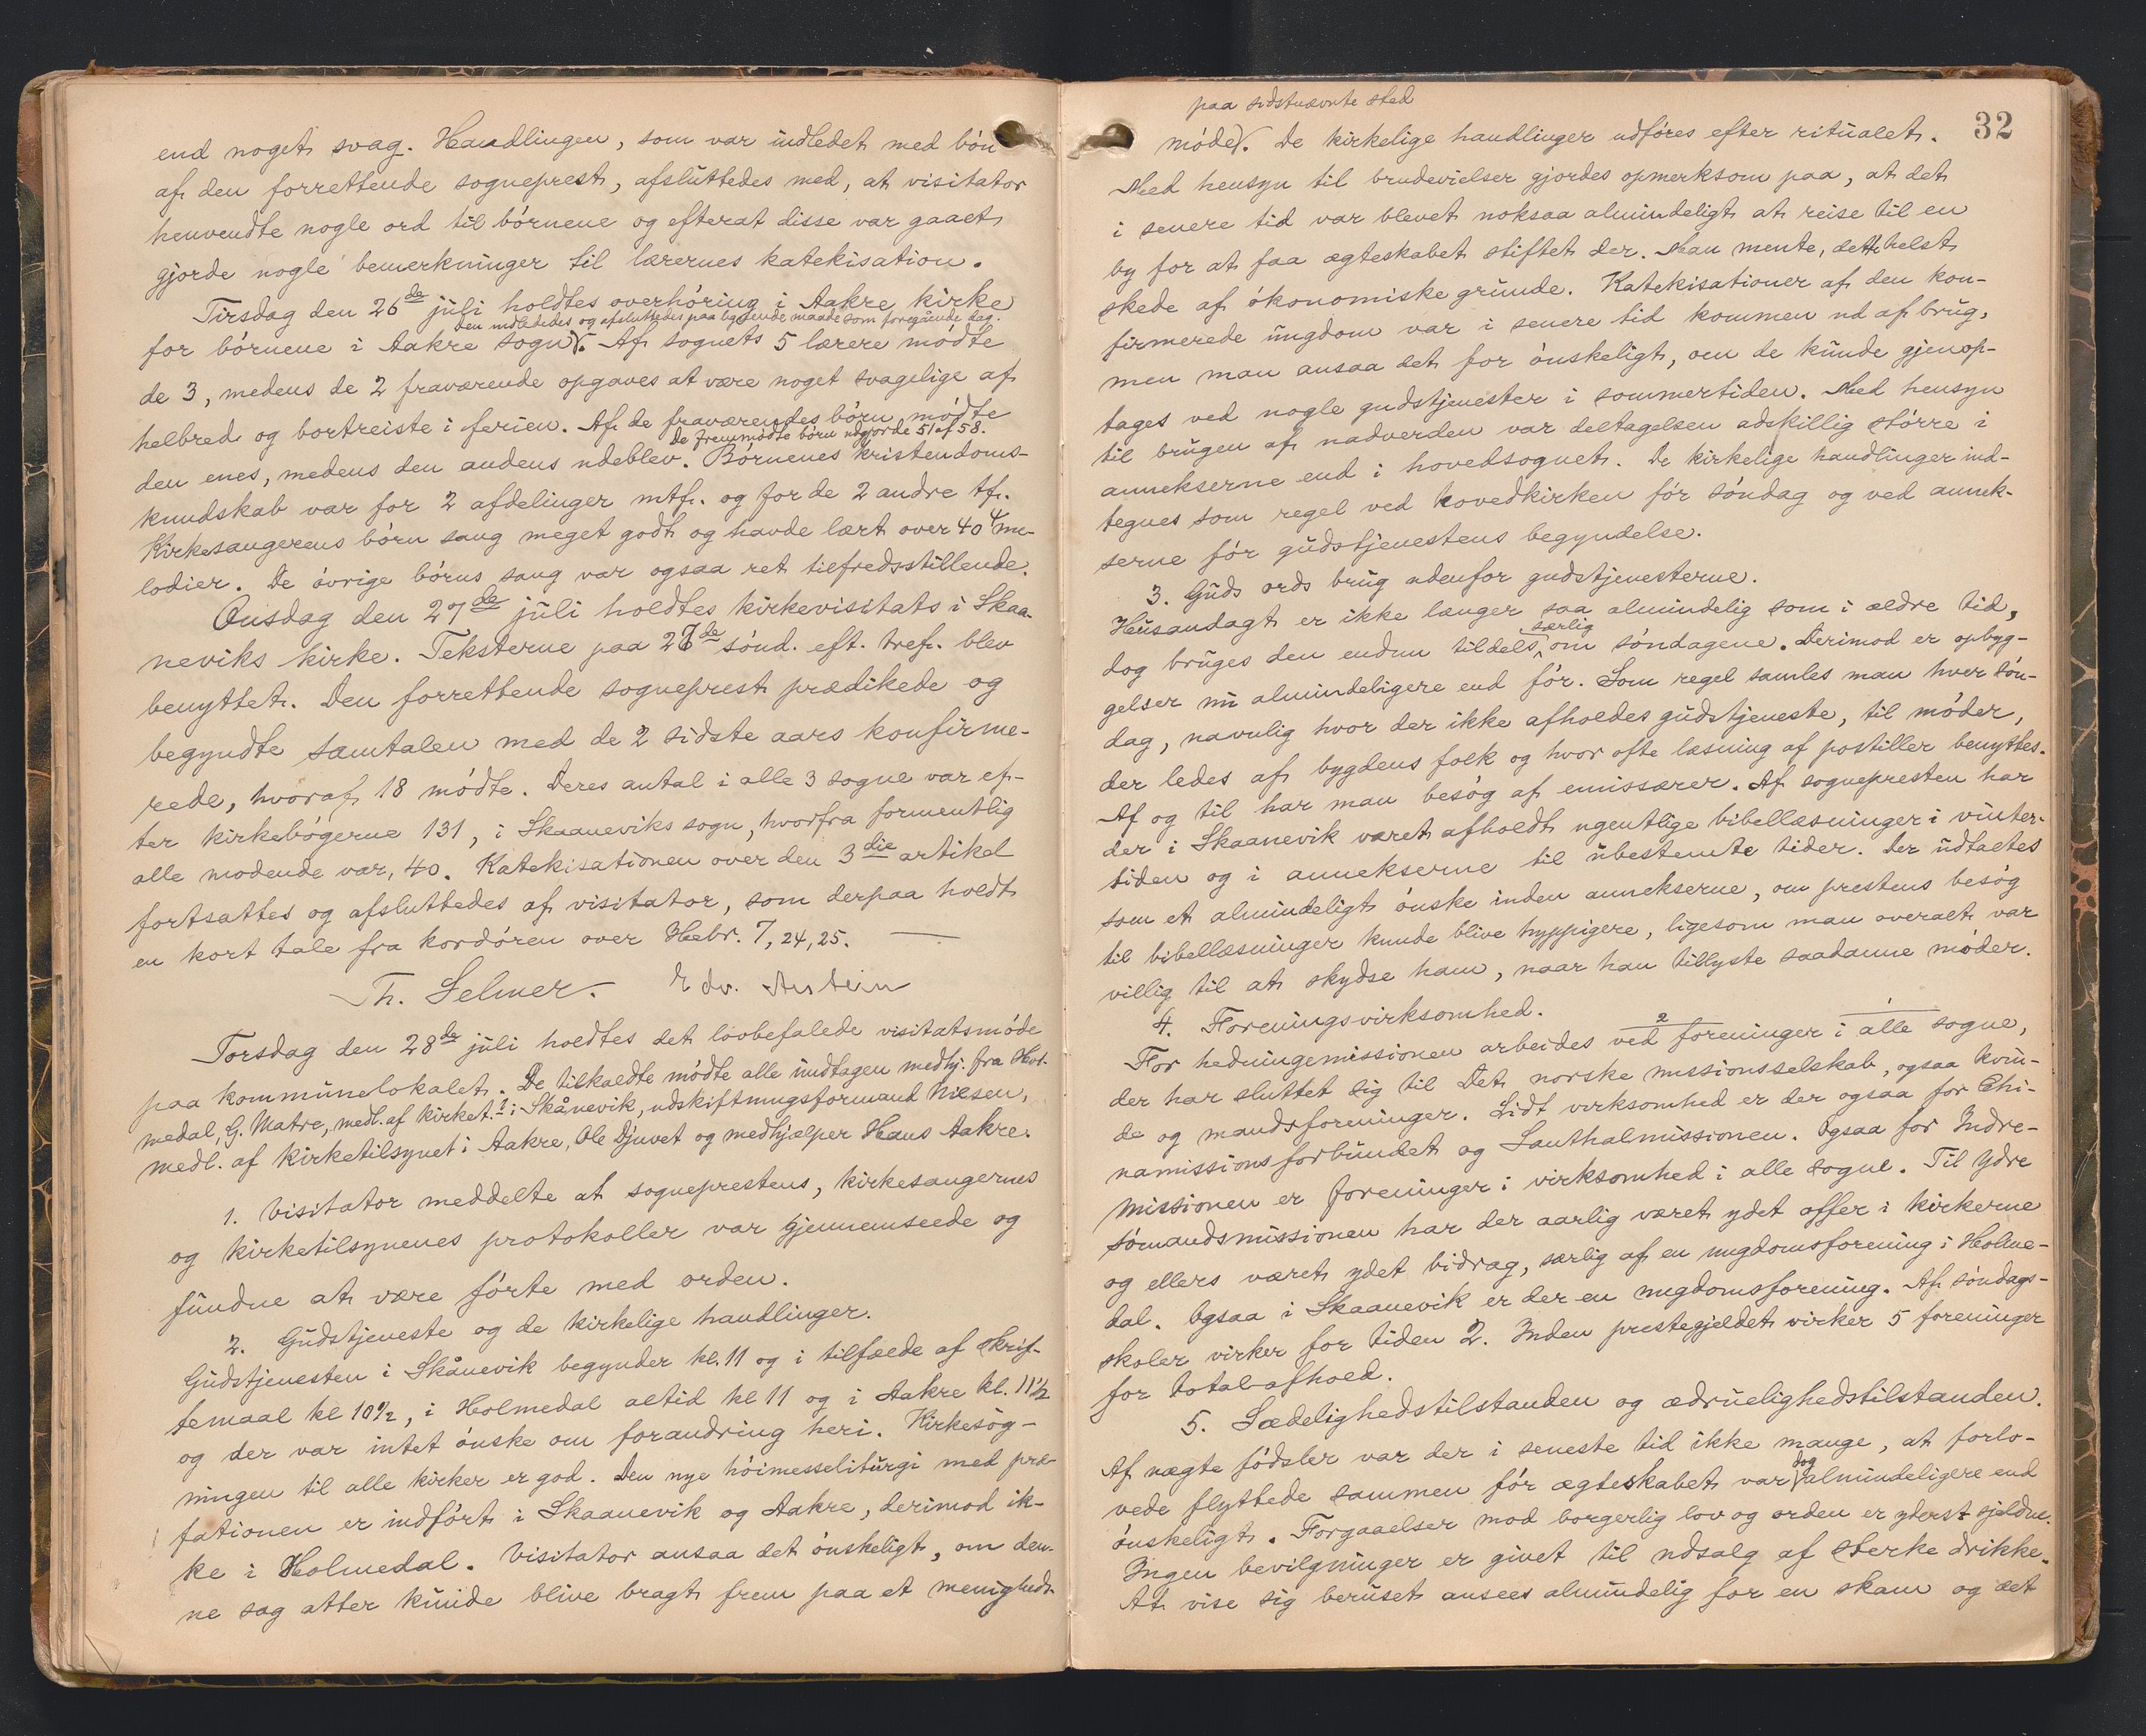 end noget svag. Handlingen, som var indledet med bön
af den forrettende sogneprest, afsluttedes med, at visitator
henvendte nogle ord til börnene og efterat disse var gaaet
gjorde nogle bemerkninger til lærernes katekisation.
Tirsdag den 26de juli holdtes overhöring i Aakre kirke
den indlededes og afsluttedes paa lignende maade som foregående dag.
for börnene i Aakre sogn. Af sognets 5 lærere mödte
de 3, medens de 2 fraværende opgaves at være noget svagelige af
helbred og bortreiste i ferien. Af de fraværendes börn mödte
de fremmödte börn udgjorde 51 af 58.
den enes, medens den andens udeblev. Börnenes kristendoms-
kundskab var for 2 afdelinger mtf. og for de 2 andre tf.
Kirkesangerens börn sang meget godt og havde lært over 40 me-
lodier. De övrige börns sang var ogsaa ret tilfredsstillende.
Onsdag den 27de juli holdtes kirkevisitats i Skaa-
neviks kirke. Teksterne paa 27de sönd. eft. tref. blev
benyttet. Den forrettende sogneprest prædikede og
begyndte samtalen med de 2 sidste aars konfirme-
rede, hvoraf 18 mödte. Deres antal i alle 3 sogne var ef-
ter kirkebögerne 131, i Skaaneviks sogn, hvorfra formentlig
alle mödende var, 40. Katekisationen over den 3die artikel
fortsattes og afsluttedes af visitator, som derpaa holdt
en kort tale fra kordören over Hebr. 7, 24, 25.
Th. Selmer. Edv. Anstein
Torsdag den 28de juli holdtes det lovbefalede visitatsmöde
paa kommunelokalet. De tilkaldte mödte alle undtagen medhj. fra Hol-
medal, G. Matre, medl. af kirket. i Skånevik, udskiftningsformand Nilsen,
medl. af kirketilsynet i Aakre, Ole Djuvet og medhjælper Hans Aakre.
1. Visitator meddelte at sogneprestens, kirkesangernes
og kirketilsynenes protokoller var gjennemseede og
fundne at være förte med orden.
2. Gudstjeneste og de kirkelige handlinger.
Gudstjenesten i Skånevik begynder kl. 11 og i tilfælde af skrif-
temaal kl 10½, i Holmedal altid kl 11 og i Aakre kl. 11½
og der var intet önske om forandring heri. Kirkesög-
ningen til alle kirker er god. Den nye höimesseliturgi med præ-
fationen er indfört i Skaanevik og Aakre, derimod ik-
ke i Holmedal. Visitator ansaa det önskeligt, om den-
ne sag atter kunde blive bragt frem paa et menigheds-
32
paa sidstnævnte sted
möde. De kirkelige handlinger udföres efter ritualet.
Med hensyn til brudevielser gjordes opmerksom paa, at det
i senere tid var blevet noksaa almindeligt at reise til en
by for at faa ægteskabet stiftet der. Man mente, dette helst
skede af ökonomiske grunde. Katekisationer af den kon-
firmerede ungdom var i senere tid kommen ud af brug,
men man ansaa det for önskeligt, om de kunde gjenop-
tages ved nogle gudstjenester i sommertiden. Med hensyn
til brugen af nadverden var deltagelsen adskillig större i
annekserne end i hovedsognet. De kirkelige handlinger ind-
tegnes som regel ved hovedkirken för söndag og ved annek-
serne för gudstjenestens begyndelse.
3. Guds ords brug udenfor gudstjenesterne.
Husandagt er ikke længer saa almindelig som i ældre tid,
særlig
dog bruges den endnu tildels om söndagene. Derimod er opbyg-
gelser nu almindeligere end för. Som regel samles man hver sön-
dag, navnlig hvor der ikke afholdes gudstjeneste, til möder,
der ledes af bygdens folk og hvor ofte læsning af postiller benyttes.
Af og til har man besög af emissærer. Af sognepresten har
der i Skaanevik været afholdt ugentlige bibellæsninger i vinter-
tiden og i annekserne til ubestemte tider. Der udtaltes
som et almindeligt önske inden annekserne, om prestens besög
til bibellæsninger kunde blive hyppigere, ligesom man overalt var
villig til at skydse ham, naar han tillyste saadanne möder.
4. Foreningsvirksomhed.
For hedningemissionen arbeides ved foreninger i alle sogne,
der har sluttet sig til Det norske missionsselskab, ogsaa kvin-
de og mandsforeninger. Lidt virksomhed er der ogsaa for Chi-
namissionsforbundet og Santhalmissionen. Ogsaa for Indre-
missionen er foreninger i virksomhed i alle sogne. Til ydre
sömandsmissionen har der aarlig været ydet offer i kirkerne
og ellers været ydet bidrag, særlig af en ungdomsforening i Holme-
dal. Ogsaa i Skaanevik er der en ungdomsforening. Af söndags-
skoler virker for tiden 2. Inden prestegjeldet virker 5 foreninger
for total-afhold.
5. Sædelighedstilstanden og ædruelighedstilstanden.
Af uægte födsler var der i seneste tid ikke mange, at forlo-
dog
vede flyttede sammen för ægteskabet var almindeligere end
önskeligt. Forgaaelser mod borgerlig lov og orden er yderst sjeldne.
Ingen bevilgninger er givet til udsalg af sterke drikke.
At vise sig beruset ansees almindelig for en skam og det